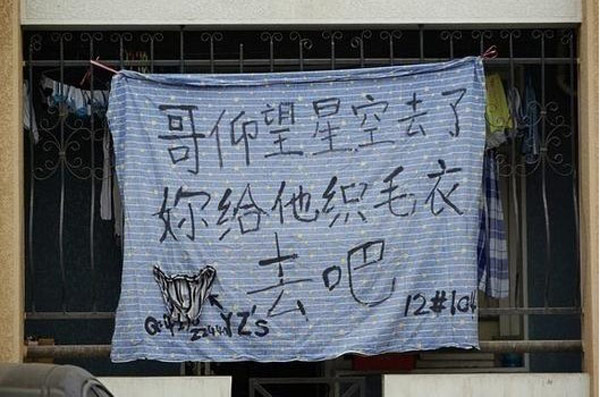 哥仰望星空去了
妳给他织毛衣
去吧
YZ's
12#104